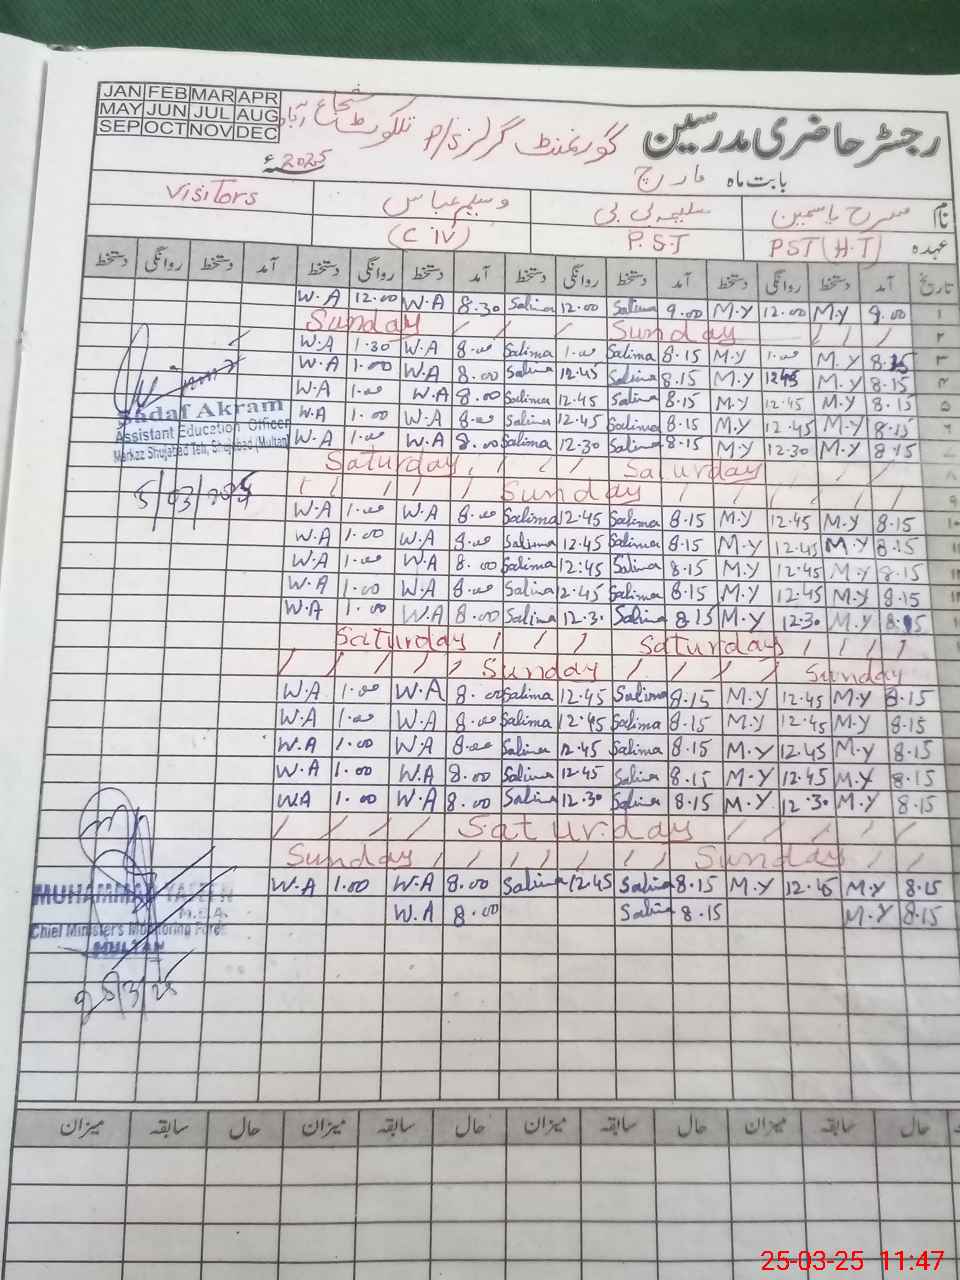 JAN FEB MAR APR
MAY JUN JUL AUG
SEP OCT NOV DEC
رجسٹر حاضری مدرسین گورنمنٹ گرلز P/S شجاع آباد
بابت ماہ مارچ 2025ء
نام یاسمین سلیمہ بی بی وسیم عباس Visitors
عہدہ PST (H.T) P.S.T (C IV)
تاریخ آمد دستخط روانگی دستخط آمد دستخط روانگی دستخط آمد دستخط روانگی دستخط آمد دستخط روانگی دستخط
۱ 9.00 M.Y 12.00 M.Y 9.00 Salima 12.00 Salima 8.30 W.A 12.00 W.A
۲ Sunday Sunday
۳ 8.15 M.Y 1.00 M.Y 8.15 Salima 1.00 Salima 8.00 W.A 1.30 W.A
۴ 8.15 M.Y 12.45 M.Y 8.15 Salima 12.45 Salima 8.00 W.A 1.00 W.A
۵ 8.15 M.Y 12.45 M.Y 8.15 Salima 12.45 Salima 8.00 W.A 1.00 W.A
۶ 8.15 M.Y 12.45 M.Y 8.15 Salima 12.45 Salima 8.00 W.A 1.00 W.A
۷ 8.15 M.Y 12.30 M.Y 8.15 Salima 12.30 Salima 8.00 W.A 1.00 W.A
۸ Saturday Saturday
۹ Sunday
۱۰ 8.15 M.Y 12.45 M.Y 8.15 Salima 12.45 Salima 8.00 W.A 1.00 W.A
8.15 M.Y 12.45 M.Y 8.15 Salima 12.45 Salima 8.00 W.A 1.00 W.A
8.15 M.Y 12.45 M.Y 8.15 Salima 12:45 Salima 8.00 W.A 1.00 W.A
8.15 M.Y 12.45 M.Y 8.15 Salima 12.45 Salima 8.00 W.A 1.00 W.A
8.15 M.Y 12.30 M.Y 8.15 Salima 12.30 Salima 8.00 W.A 1.00 W.A
Saturday Saturday
Sunday Sunday
8.15 M.Y 12.45 M.Y 8.15 Salima 12.45 Salima 8.00 W.A 1.00 W.A
8.15 M.Y 12.45 M.Y 8.15 Salima 12.45 Salima 8.00 W.A 1.00 W.A
8.15 M.Y 12.45 M.Y 8.15 Salima 12.45 Salima 8.00 W.A 1.00 W.A
8.15 M.Y 12.45 M.Y 8.15 Salima 12.45 Salima 8.00 W.A 1.00 W.A
8.15 M.Y 12.30 M.Y 8.15 Salima 12.30 Salima 8.00 W.A 1.00 W.A
Saturday
Sunday Sunday
8.15 M.Y 12.45 M.Y 8.15 Salima 12.45 Salima 8.00 W.A 1.00 W.A
8.15 M.Y 8.15 Salima 8.00 W.A
Sadaf Akram
Assistant Education Officer
Markaz Shujabad Teh, Shujabad (Multan)
5/03/2025
MUHAMMAD YASEEN
M.E.A.
Chief Minister's Monitoring Force
MULTAN
25/3/25
حال سابقہ میزان حال سابقہ میزان حال سابقہ میزان حال سابقہ میزان
25-03-25 11:47